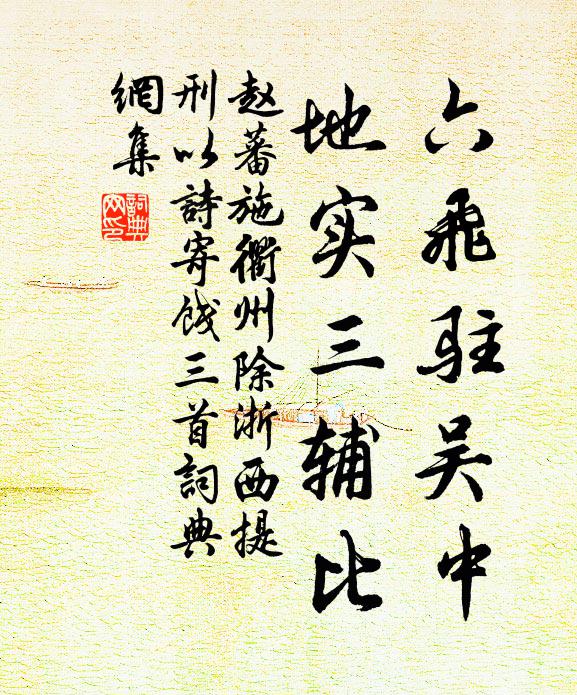 六飛駐吴中
地实三辅比
赵蕃施衢州除浙西提
刑以詩寄餞三首詞典
網集
詞典
网印